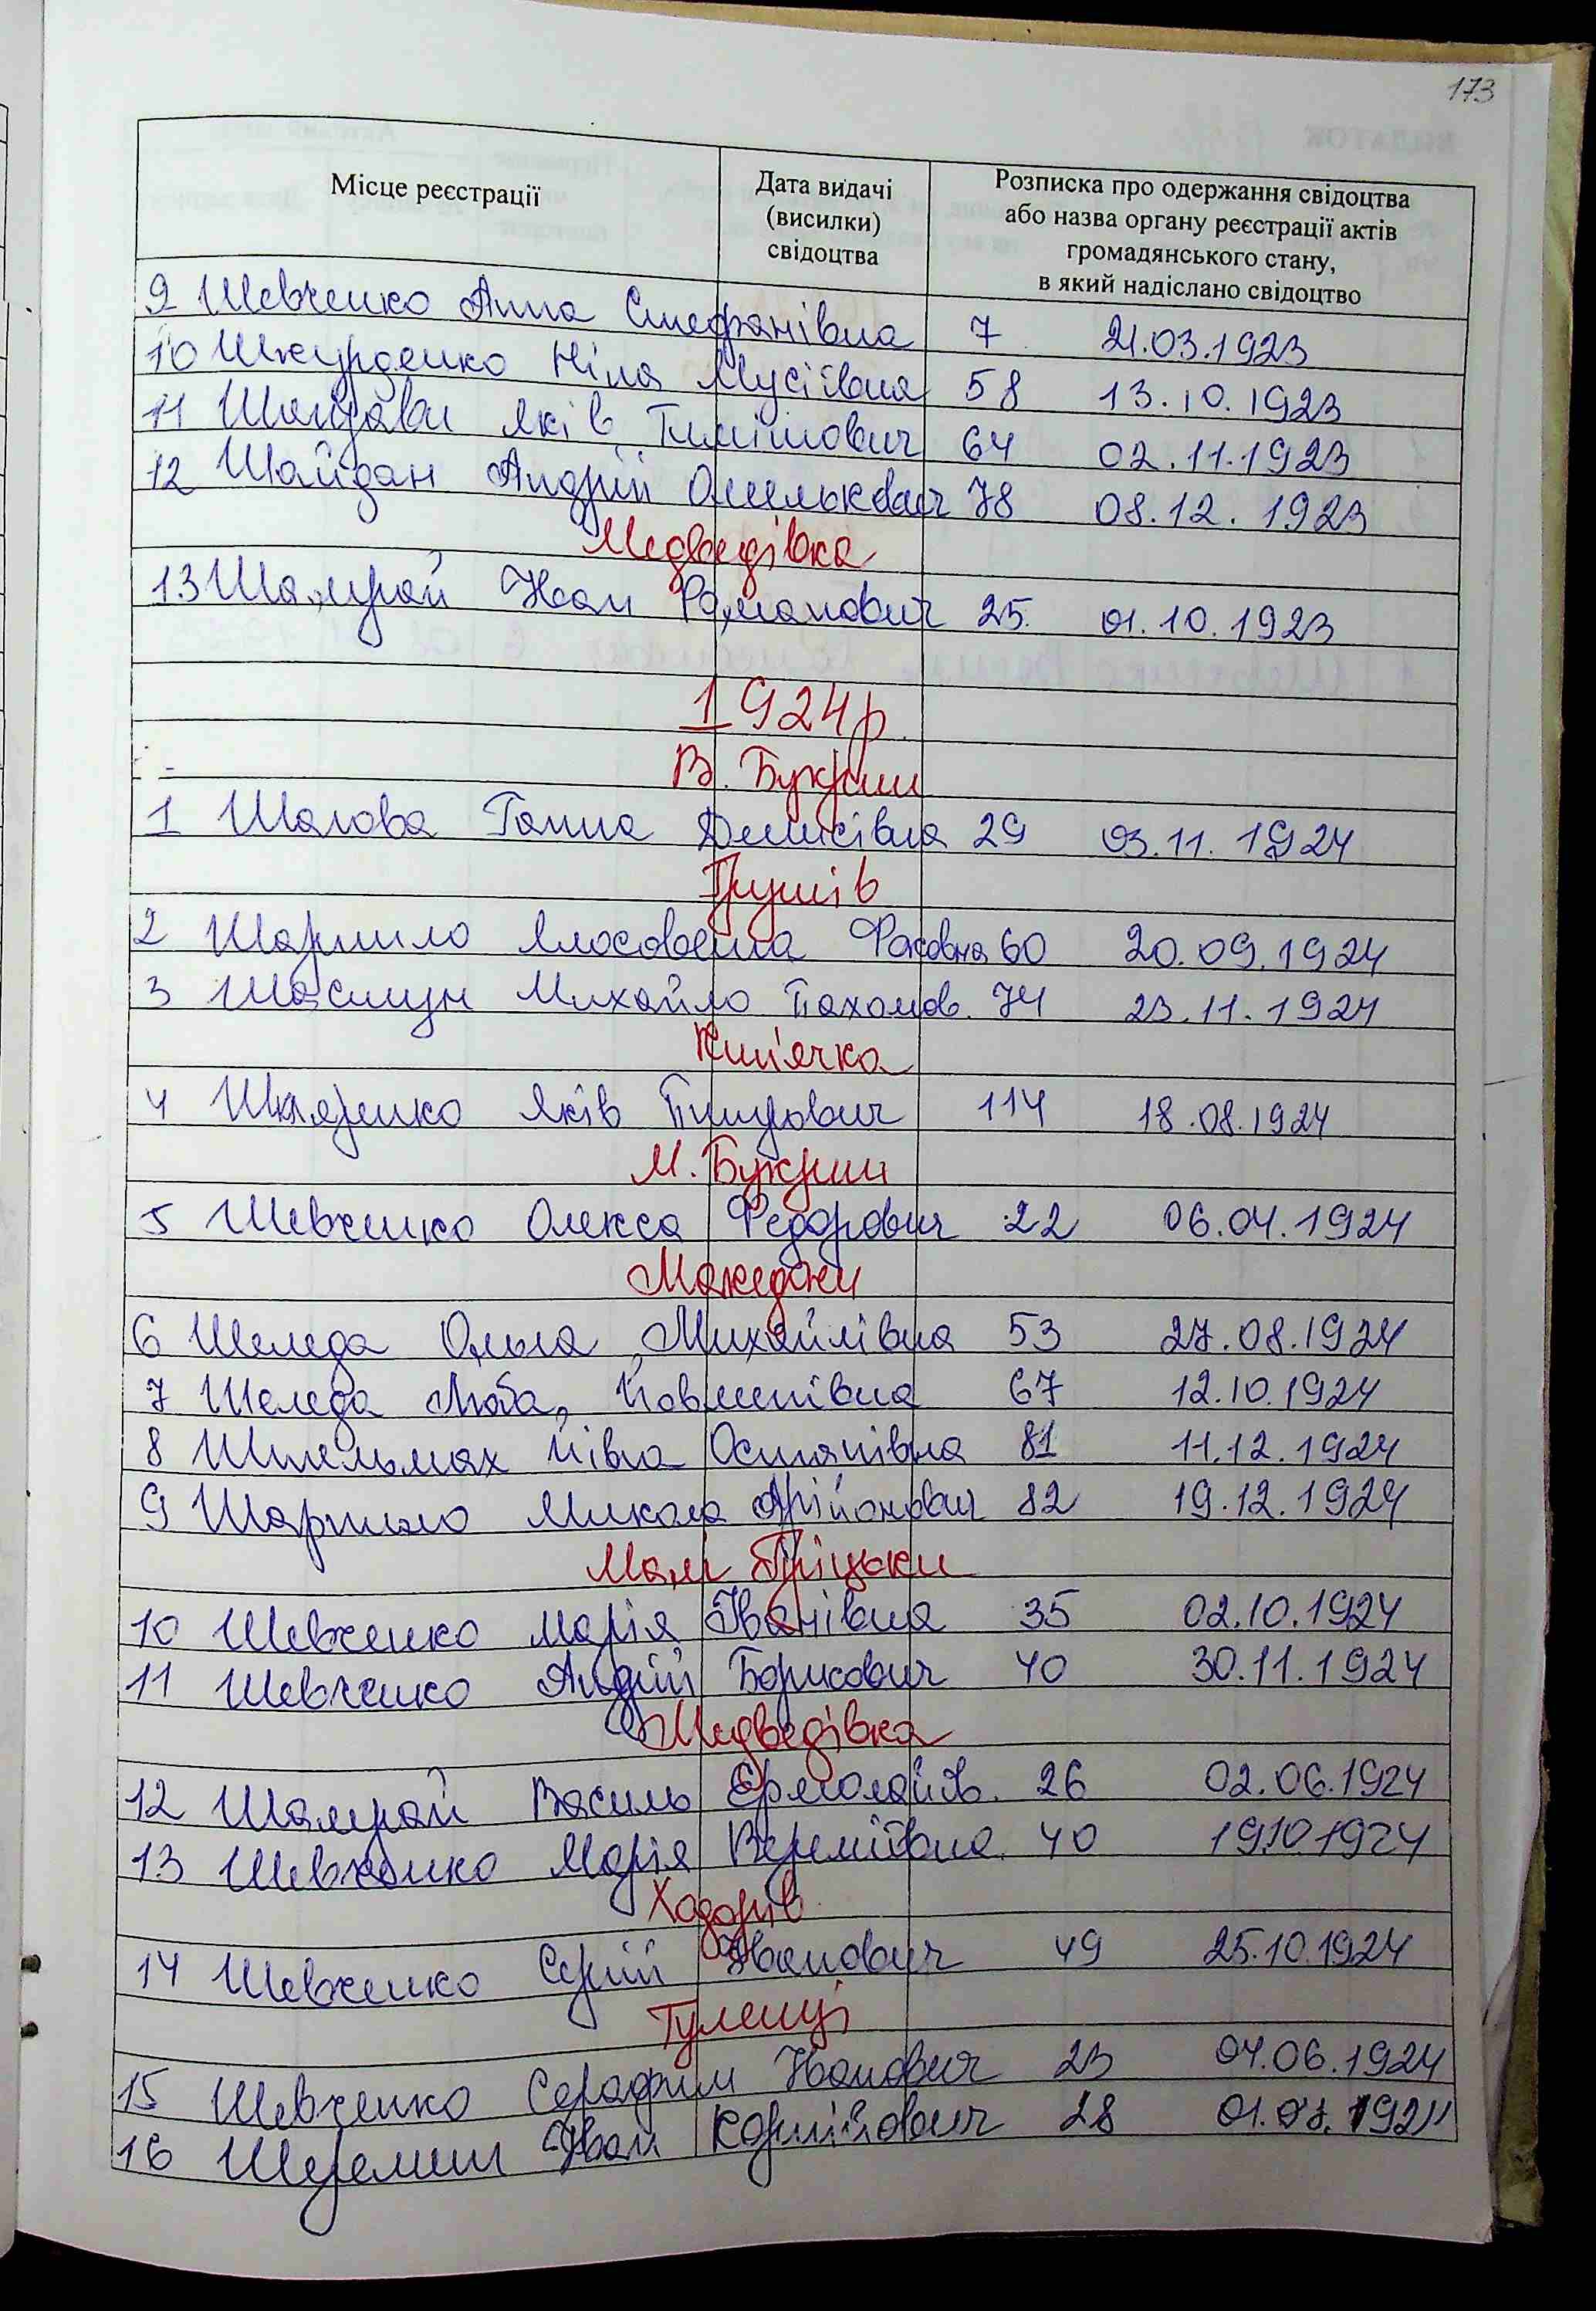 173
Місце реєстрації
Дата видачі
(висилки)
свідоцтва
Розписка про одержання свідоцтва
або назва органу реєстрації актів
громадянського стану,
в який надіслано свідоцтво
9 Шевченко Анна Стефанівна 7 21.03.1923
10 Шкурденко Ніла Мусіївна 58 13.10.1923
11 Яків Тимішович 64 02.11.1923
12 Шайдан Андрій Омелькович 78 08.12.1923
Медведівка
13 Шамрай Іван Романович 25. 01.10.1923
1924р.
В. Букрин
1 Шалова Ганна Денисівна 29 03.11.1924
Грушів
2 Шаршило Фоковна 60 20.09.1924
3 Михайло Пахомов. 74 23.11.1924
Кип'ячка
4 Шкляренко Яків 114 18.08.1924
М. Букрин
5 Шевченко Олекса Федорович 22 06.04.1924
Македони
6 Шеледа Ольга Михайлівна 53 27.08.1924
7 Шеледа Люба 67 12.10.1924
8 Шпельмах Півна Остапівна 81 11.12.1924
9 Шаршило Микола 82 19.12.1924
Малі Пріцьки
10 Шевченко Марія Іванівна 35 02.10.1924
11 Шевченко Андрій Борисович 40 30.11.1924
Медведівка
12 Шамрай Василь Ермолайов. 26 02.06.1924
13 Шевченко Марія Веремієвна 40 19.10.1924
Ходорів
14 Шевченко Сергій Іванович 49 25.10.1924
Тулинці
15 Шевченко Серафим Іванович 23 04.06.1924
16 Шеремет Іван Корнійович 28 1924